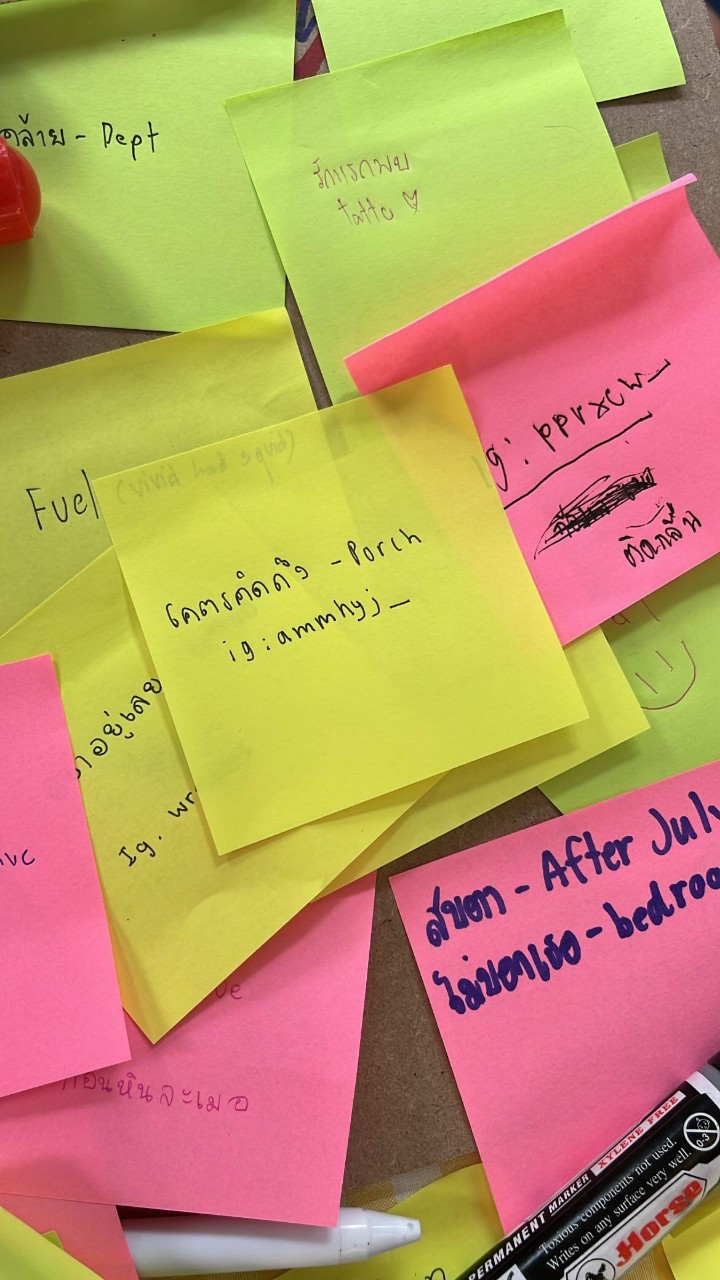 คล้าย - Dept
รักแรกพบ
tatto ♡
ig: pprxcw_
ติดกลิ่น
Fuel (vivid had squid)
โคตรคิดถึง - Porch
ig: ammhyj_
าอยู่เลย
Ig. wr
ve
ก้อนหินละเมอ
สีขอตา - After July
ไม่บอกเธอ - bedroo
PERMANENT MARKER XYLENE FREE
Toxious components not used.
Writes on any surface very well.
0-3
Horse